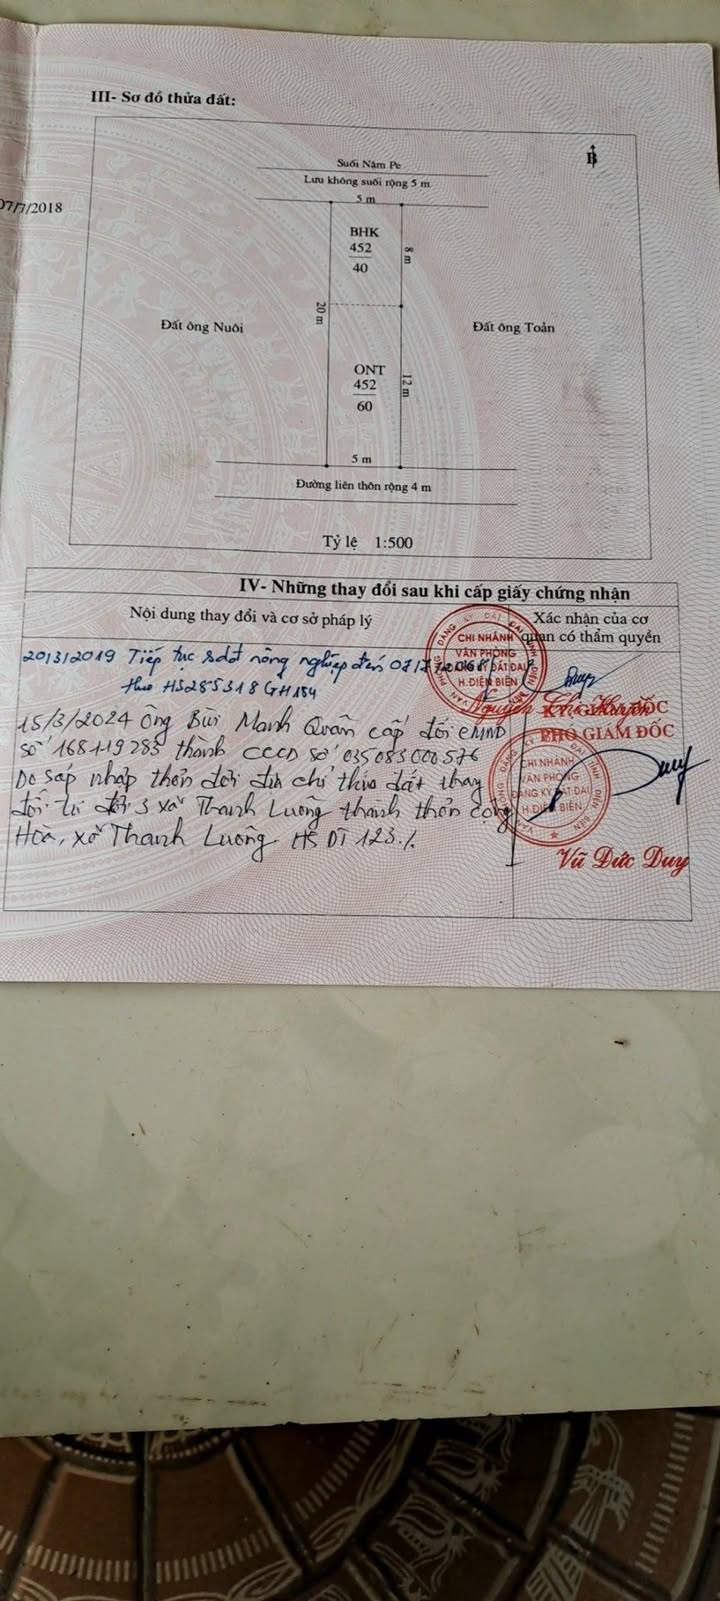 III- Sơ đồ thửa đất:
B
Suối Nâm Pe
Lưu không suối rộng 5 m
07/7/2018
5 m
BHK
452
40
8 m
20 m
Đất ông Nuôi
Đất ông Toản
ONT
452
60
12 m
5 m
Đường liên thôn rộng 4 m
Tỷ lệ 1:500
IV- Những thay đổi sau khi cấp giấy chứng nhận
Nội dung thay đổi và cơ sở pháp lý
Xác nhận của cơ
quan có thẩm quyền
20/3/2019 Tiếp tục sdđ nông nghiệp đến
theo HS285318GH154
CHI NHÁNH
VĂN PHÒNG
H.ĐIỆN BIÊN
PHÓ GIÁM ĐỐC
15/3/2024 Ông Bùi Mạnh Quân cấp đổi CMND
số 168119283 thành CCCD số 035083000576
Do sáp nhập thôn đội địa chỉ thửa đất thay
đổi từ đội 3 xã Thanh Luông thành thôn Cộng
Hòa, xã Thanh Luông HS DT 123./.
CHI NHÁNH
VĂN PHÒNG
ĐĂNG KÝ ĐẤT ĐAI
H.ĐIỆN BIÊN
Vũ Đức Duy